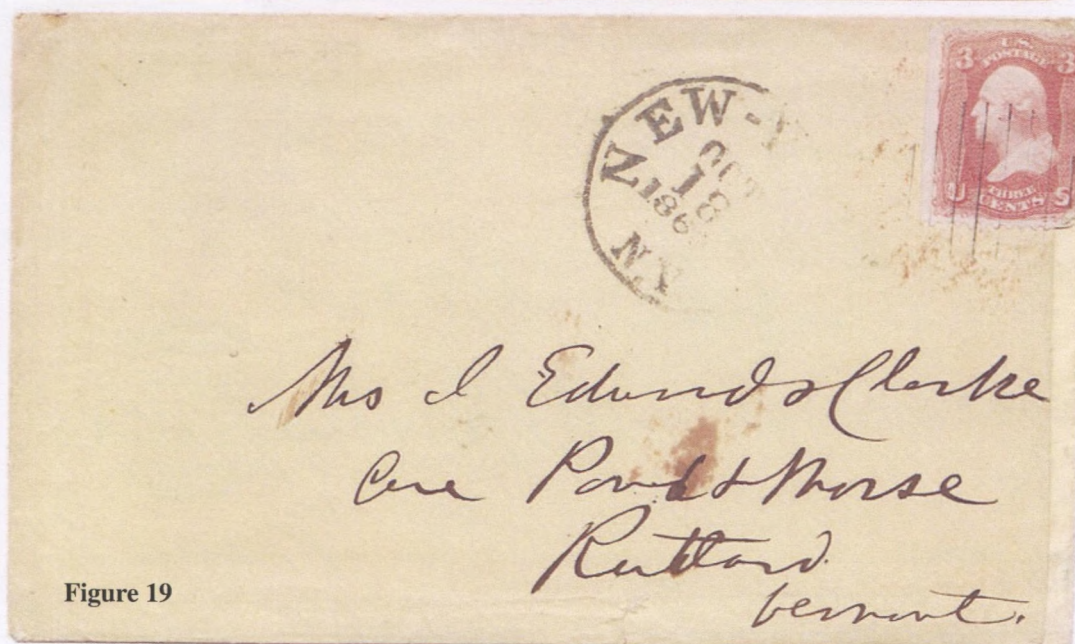 3 U.S. 3
POSTAGE
THREE
U CENTS S
NEW-Y
OCT
18
186
N.Y.
Mrs I Edwards Clarke
Care Pond & Morse
Rutland
Vermont.
Figure 19